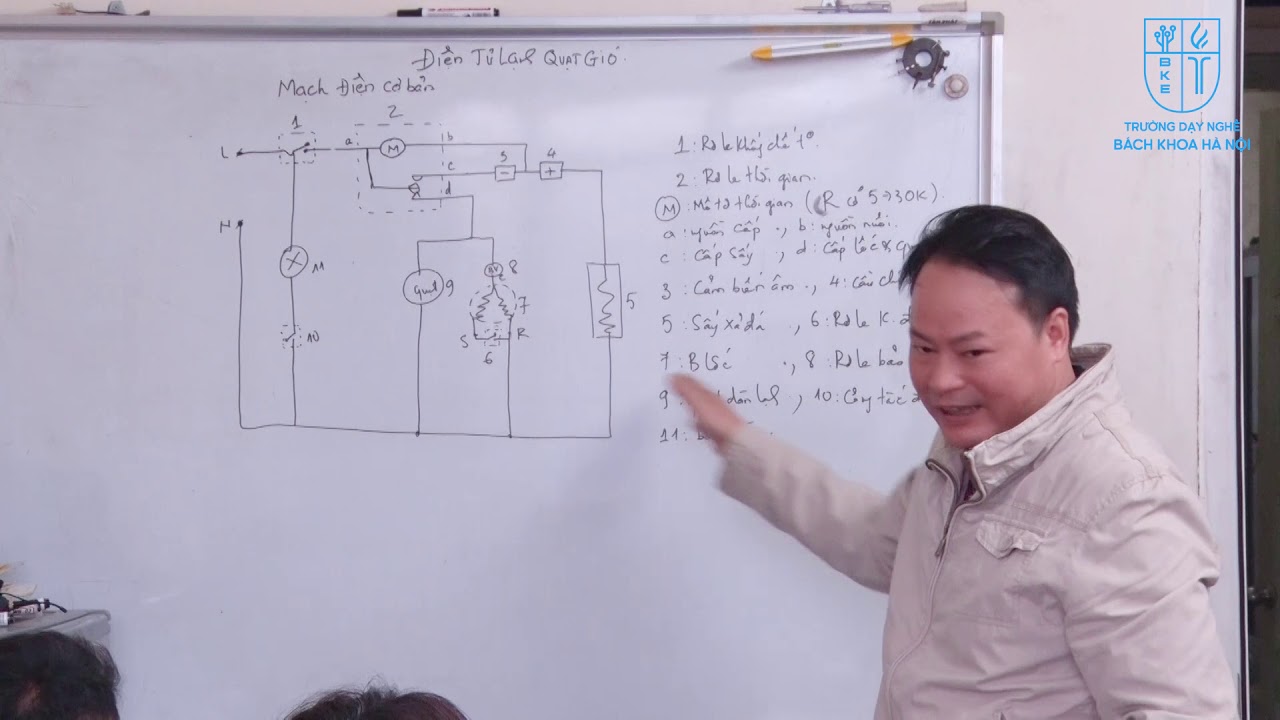 Điện Tủ Lạnh QUẠT GIÓ.
Mạch Điện cơ bản
1
2
L
a
M
b
c
d
3
4
-
+
N
11
10
Quạt
9
8
7
S
R
6
5
1: Rơ le khống chế t°.
2: Rơ le thời gian.
M : Mô tơ thời gian (R có 5→30K).
a : nguồn cấp ., b : nguồn nuôi.
c : Cấp sấy , d : Cấp lốc &
3 : Cảm biến âm ., 4 : cầu ch
5 : Sấy xả đá ., 6 : Rơ le K.
7 : Blốc ., 8 : Rơ le bảo
9 : dàn lạnh , 10 : Công tắc
11 :
BKE
TRƯỜNG DẠY NGHỀ
BÁCH KHOA HÀ NỘI